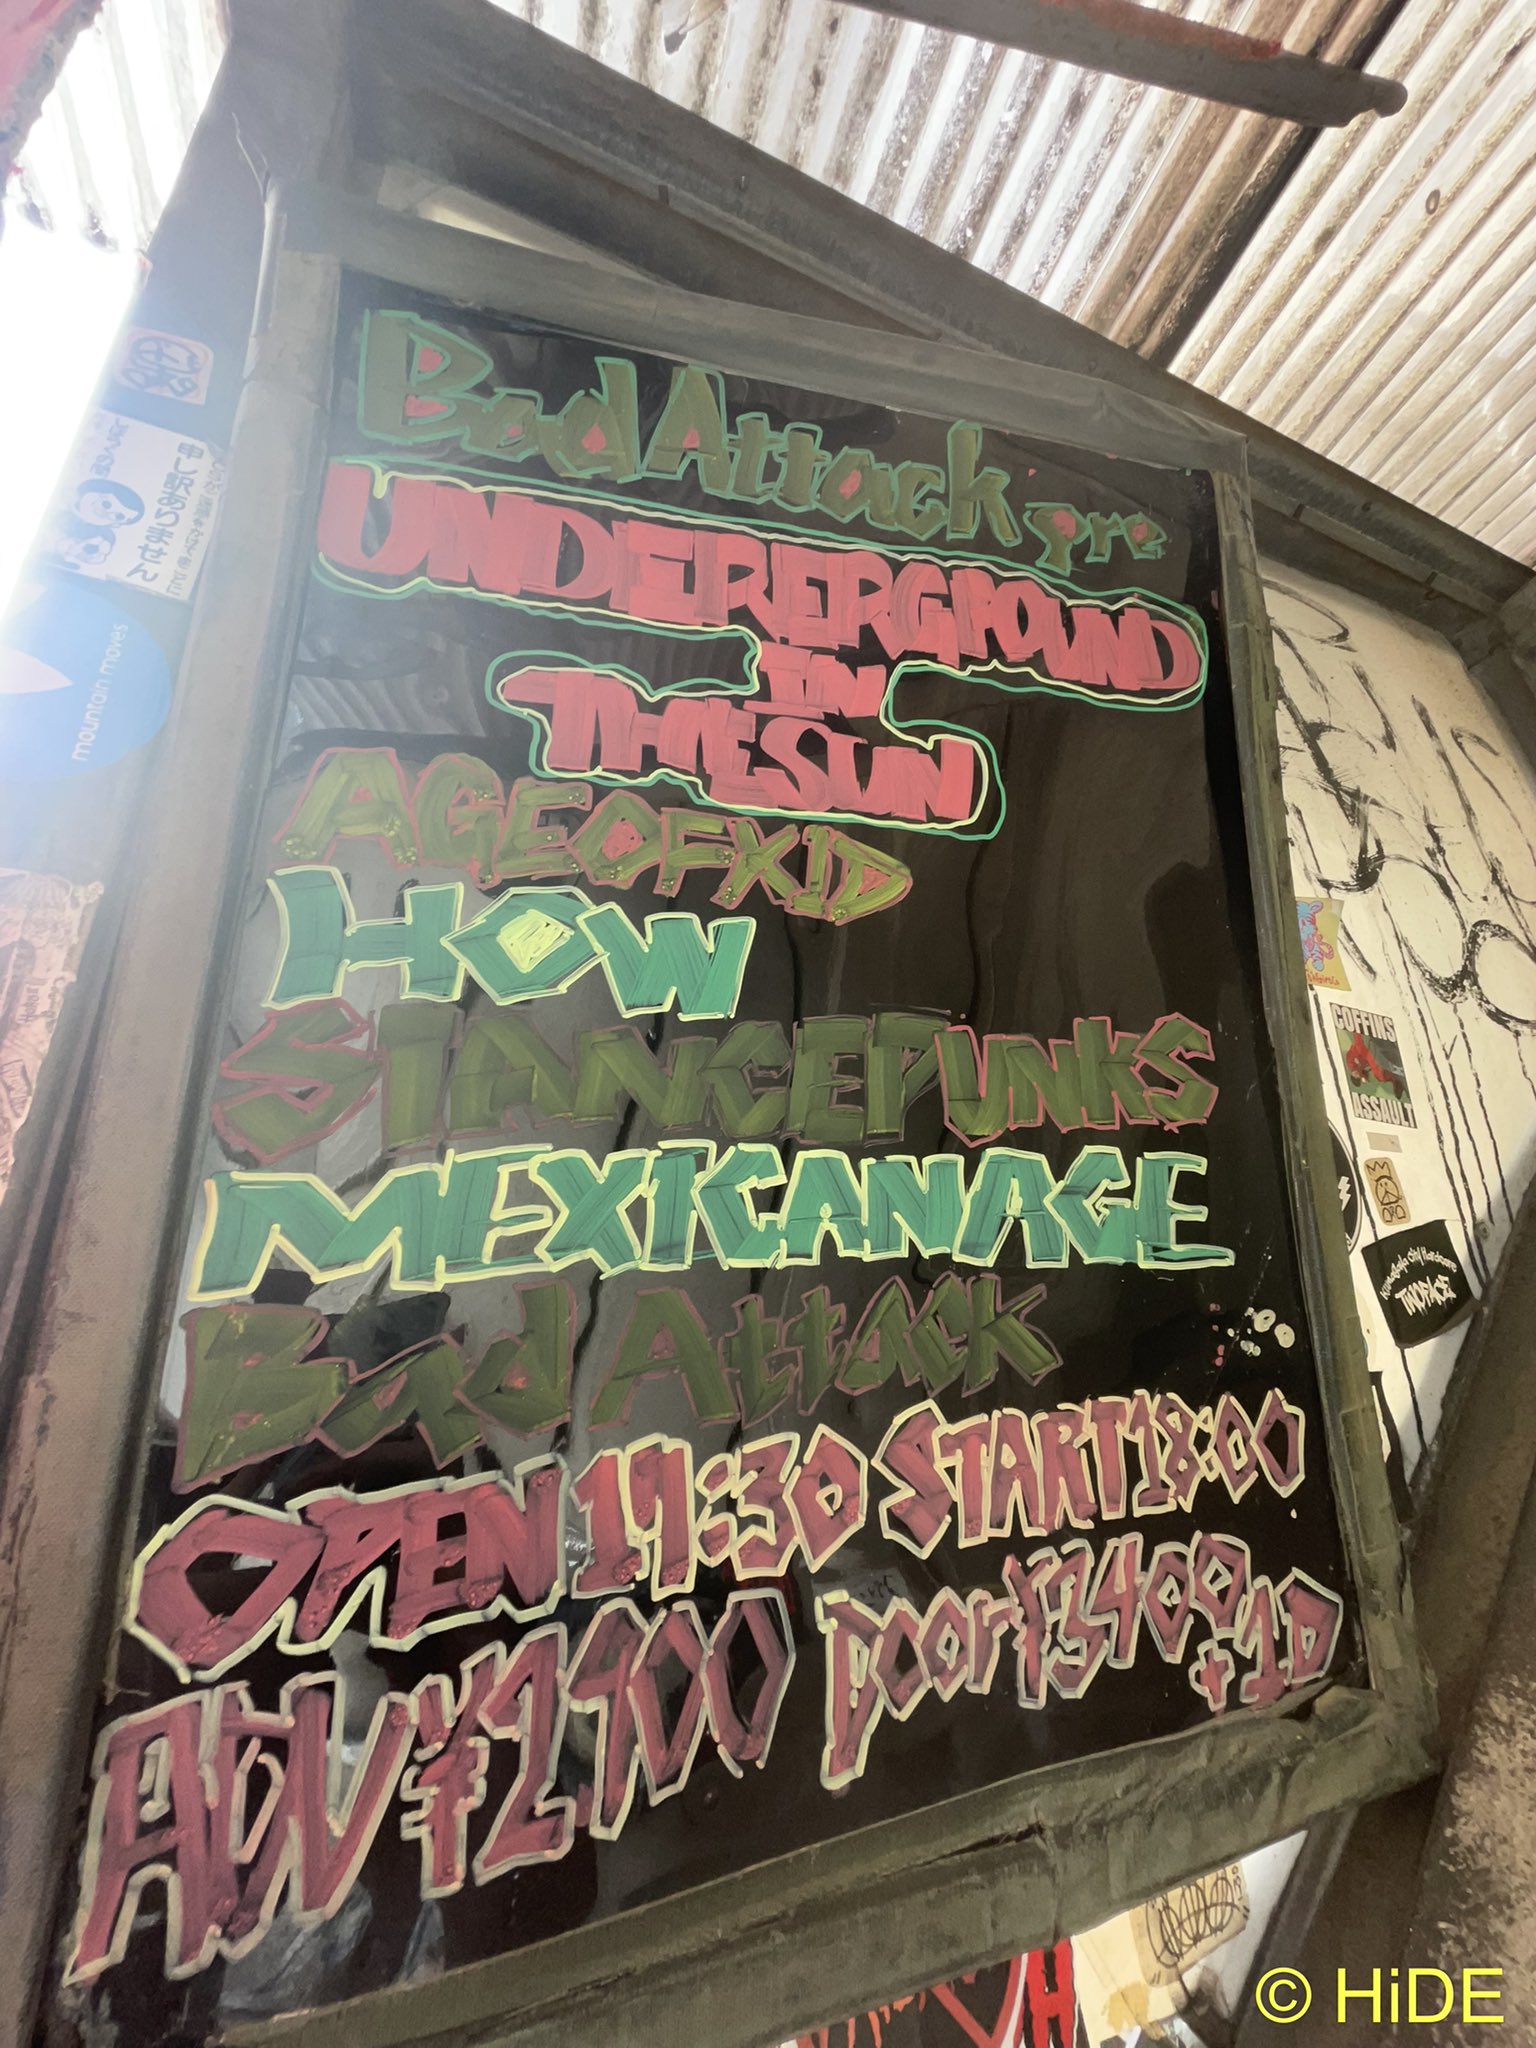 Bad Attack pre
UNDERERGROUND
IN
THE SUN
AGE OF XID
HOW
STANCEPUNKS
MEXICANAGE
Bad Attack
OPEN 17:30 START 18:00
ADV ¥2,900 Door ¥3400
+1D
申し訳ありません
mountain moves
COFFINS
ASSAULT
TWOFACE
© HiDE